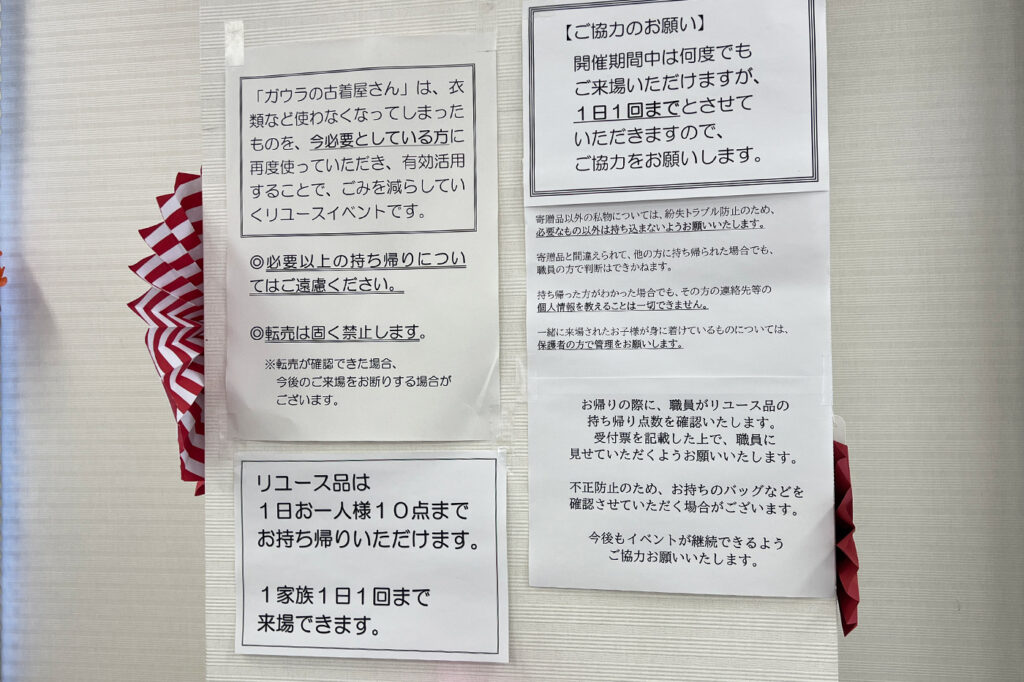 「ガウラの古着屋さん」は、衣
類など使わなくなってしまった
ものを、今必要としている方に
再度使っていただき、有効活用
することで、ごみを減らしてい
くリユースイベントです。
◎必要以上の持ち帰りについ
てはご遠慮ください。
◎転売は固く禁止します。
※転売が確認できた場合、
今後のご来場をお断りする場合が
ございます。
リユース品は
1日お一人様10点まで
お持ち帰りいただけます。
1家族1日1回まで
来場できます。
【ご協力のお願い】
開催期間中は何度でも
ご来場いただけますが、
1日1回までとさせて
いただきますので、
ご協力をお願いします。
寄贈品以外の私物については、紛失トラブル防止のため、
必要なもの以外は持ち込まないようお願いいたします。
寄贈品と間違えられて、他の方に持ち帰られた場合でも、
職員の方で判断はできかねます。
持ち帰った方がわかった場合でも、その方の連絡先等の
個人情報を教えることは一切できません。
一緒に来場されたお子様が身に着けているものについては、
保護者の方で管理をお願いします。
お帰りの際に、職員がリユース品の
持ち帰り点数を確認いたします。
受付票を記載した上で、職員に
見せていただくようお願いいたします。
不正防止のため、お持ちのバッグなどを
確認させていただく場合がございます。
今後もイベントが継続できるよう
ご協力お願いいたします。